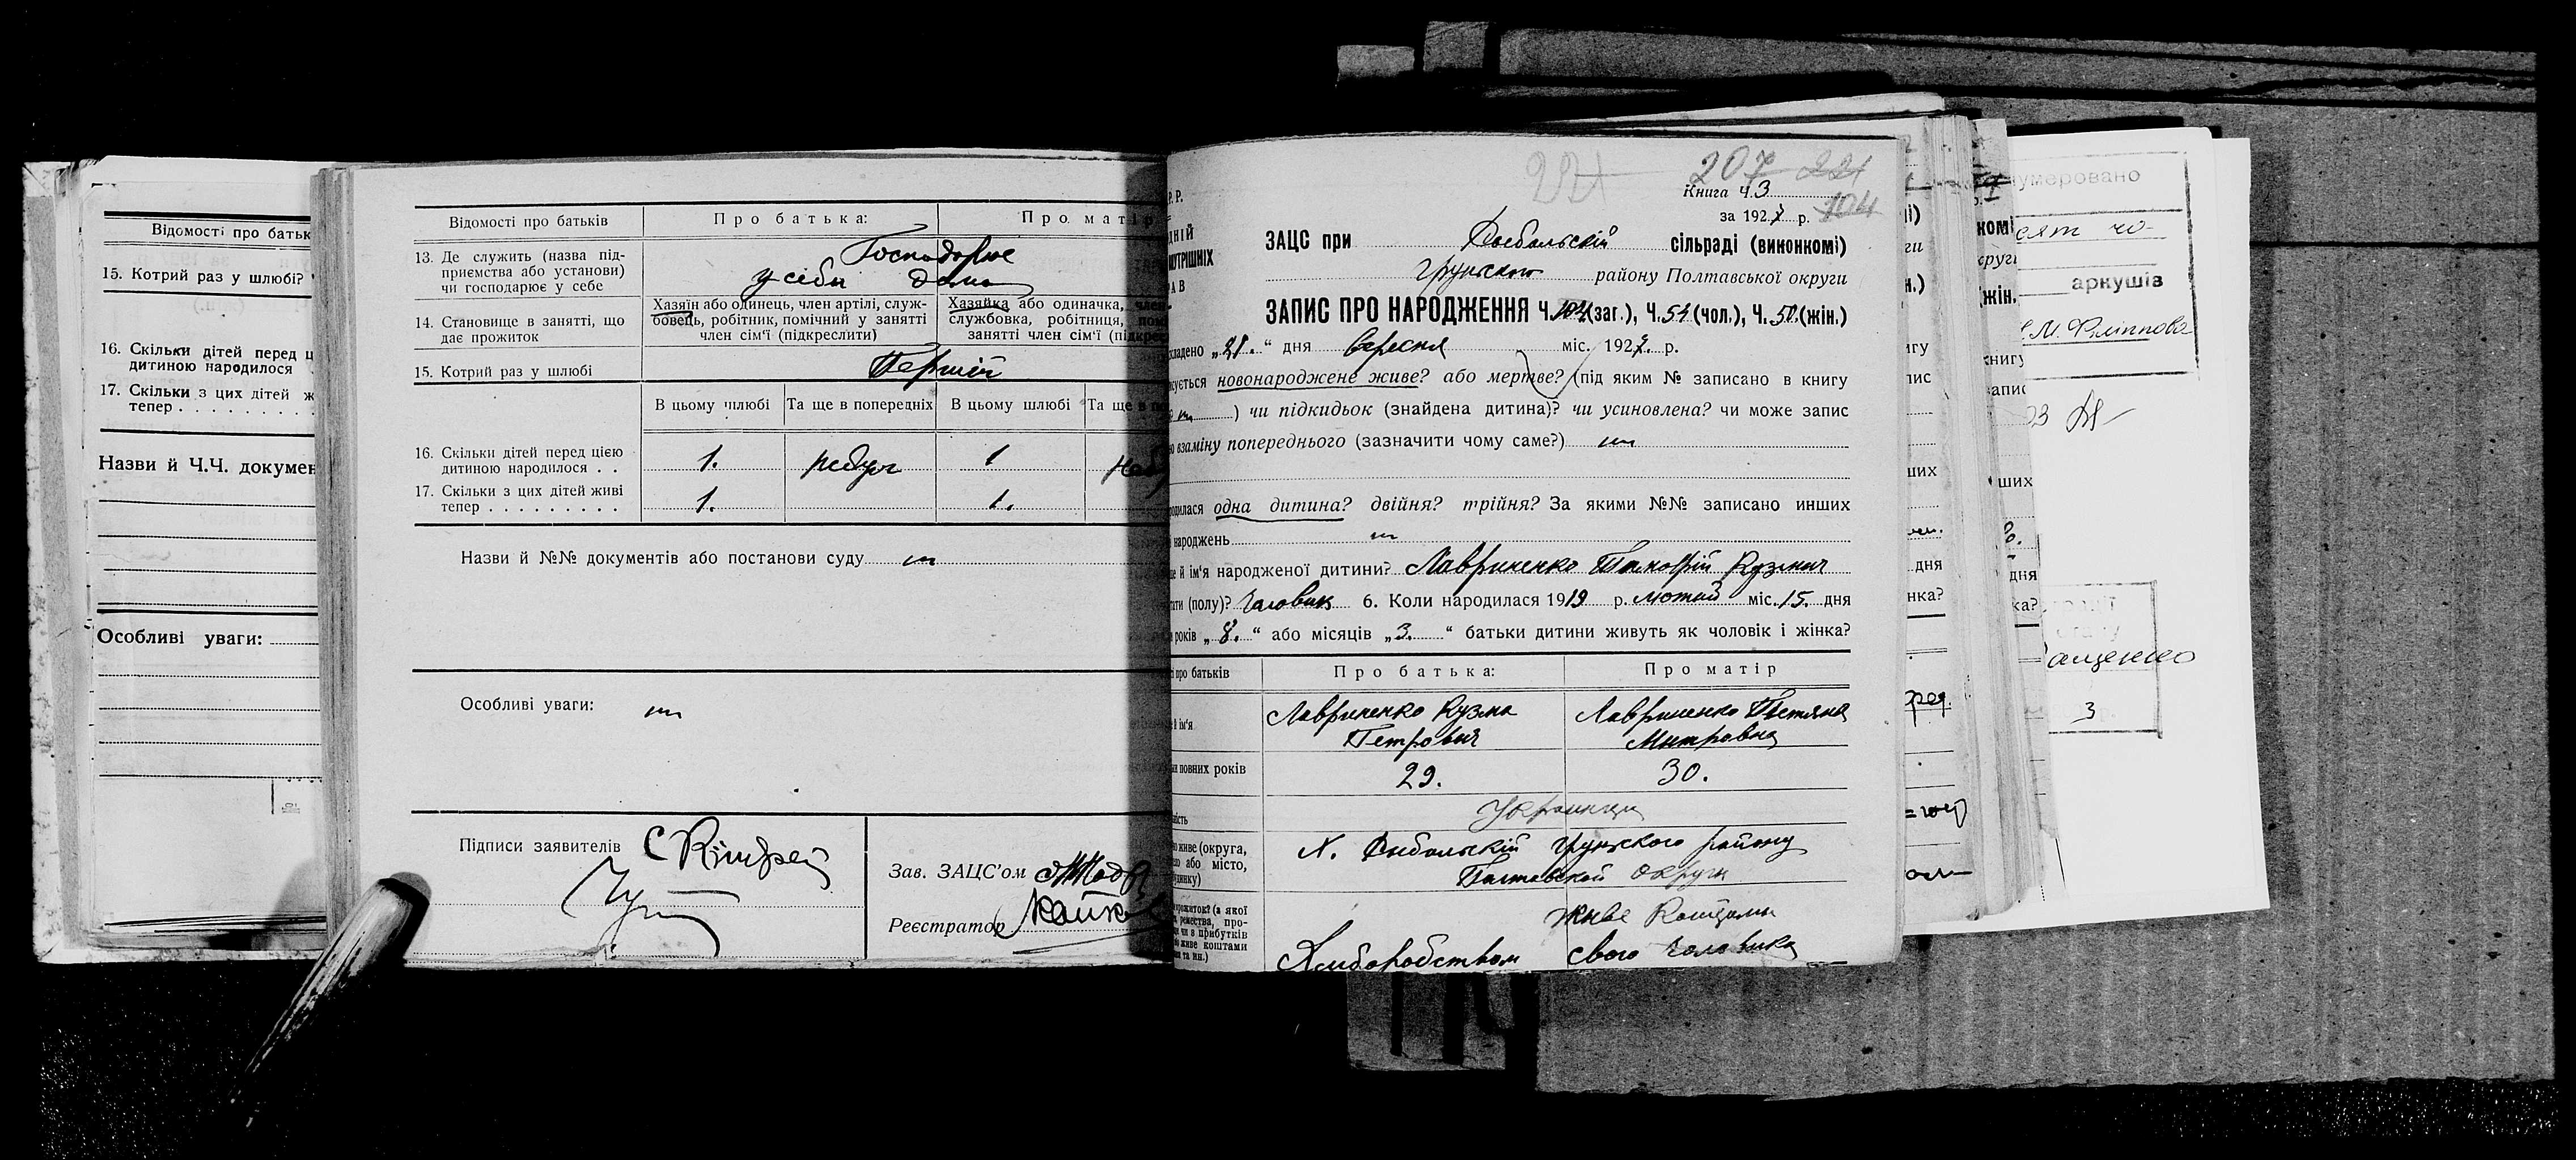 Відомості про батьк
15. Котрий раз у шлюбі?
16. Скільки дітей перед ц
дитиною народилося
17. Скільки з цих дітей ж
тепер . . . . . . . . .
Назви й Ч.Ч. докумен
Особливі уваги:
Відомості про батьків
Про батька:
Про матір
13. Де служить (назва під-
приємства або установи)
чи господарює у себе
Господорює
у сібя дома
14. Становище в занятті, що
дає прожиток
Хазяїн або одинець, член артілі, служ-
бовець, робітник, помічний у занятті
член сім'ї (підкреслити)
Хазяйка або одиначка, член
службовка, робітниця, пом
занятті член сім'ї (підкрес
15. Котрий раз у шлюбі
Перший
В цьому шлюбі
Та ще в попередніх
В цьому шлюбі
Та ще в по
16. Скільки дітей перед цією
дитиною народилося . .
1.
небуло
1
неб
17. Скільки з цих дітей живі
тепер . . . . . . . . .
1.
1.
Назви й №№ документів або постанови суду
Особливі уваги:
Підписи заявителів
Зав. ЗАЦС'ом
Реєстратор
207 221
221
Книга Ч. 3
за 1927 р. 104
ЗАЦС при Рибальскій сільраді (виконкомі)
Грунського району Полтавської округи
ЗАПИС ПРО НАРОДЖЕННЯ Ч. 104 (заг.), Ч. 54 (чол.), Ч. 50 (жін.)
кладено „21.“ дня Вересня міс. 1927. р.
сується новонароджене живе? або мертве? (під яким № записано в книгу
) чи підкидьок (знайдена дитина)? чи усиновлена? чи може запис
о взаміну попереднього (зазначити чому саме?)
родилася одна дитина? двійня? трійня? За якими №№ записано инших
народжень
ще й ім'я народженої дитини? Лавриненко Тимофій Кузмич
тати (полу)? Чоловик 6. Коли народилася 1919 р. лютий міс. 15. дня
років „8.“ або місяців „3.“ батьки дитини живуть як чоловік і жінка?
і про батьків
Про батька:
Про матір
й ім'я
Лавриненко Кузма
Петрович
Лавриненко Тетяна
Митровна
ки повних років
29.
30.
ність
Українци
но живе (округа,
ло або місто,
удинку)
х. Рибальскій Грунского району
Полтавской округи
прожиток? (з якої
ремества, про-
чи з прибутків
бо живе коштами
та ин.)
Хлиборобством
Живе Коштами
свого чоловика
умеровано
сят чо-
аркушів
ащенко
3